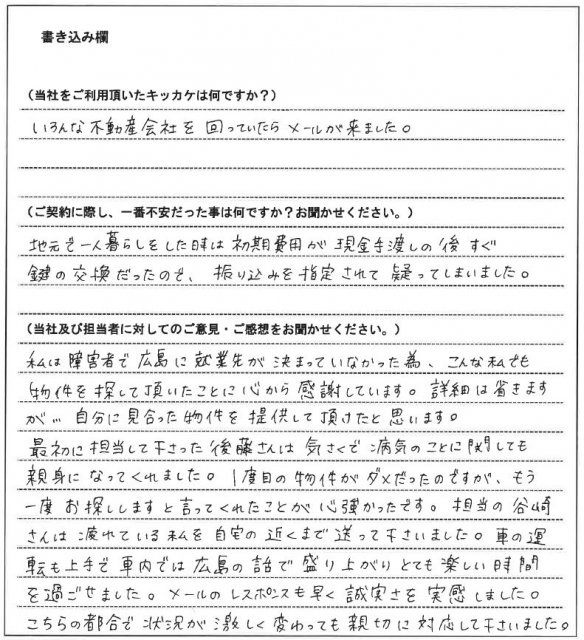 書き込み欄
（当社をご利用頂いたキッカケは何ですか？）
いろんな不動産会社を回っていたらメールが来ました。
（ご契約に際し、一番不安だった事は何ですか？お聞かせください。）
地元で一人暮らしをした時は初期費用が現金手渡しの後すぐ
鍵の交換だったので、振り込みを指定されて疑ってしまいました。
（当社及び担当者に対してのご意見・ご感想をお聞かせください。）
私は障害者で広島に就業先が決まっていなかった為、こんな私でも
物件を探して頂いたことに心から感謝しています。詳細は省きます
が… 自分に見合った物件を提供して頂けたと思います。
最初に担当して下さった後藤さんは気さくで病気のことに関しても
親身になってくれました。1度目の物件がダメだったのですが、もう
一度お探ししますと言ってくれたことが心強かったです。担当の谷崎
さんは疲れている私を自宅の近くまで送って下さいました。車の運
転も上手で車内では広島の話で盛り上がりとても楽しい時間
を過ごせました。メールのレスポンスも早く誠実さを実感しました。
こちらの都合で状況が激しく変わっても親切に対応して下さいました。